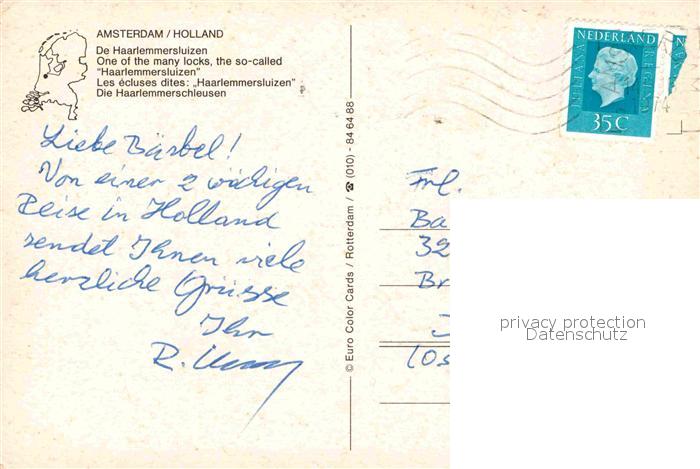 AMSTERDAM / HOLLAND
De Haarlemmersluizen
One of the many locks, the so-called
"Haarlemmersluizen"
Les écluses dites: „Haarlemmersluizen"
Die Haarlemmerschleusen
Liebe Bärbel!
Von einer 2 wöchigen
Reise in Holland
sendet Ihnen viele
herzliche Grüsse
Ihr
R.
© Euro Color Cards / Rotterdam / ☎ (010) - 84 64 88
NEDERLAND
JULIANA REGINA
35 C
Frl.
Ba
32
Br
(Os
privacy protection
Datenschutz